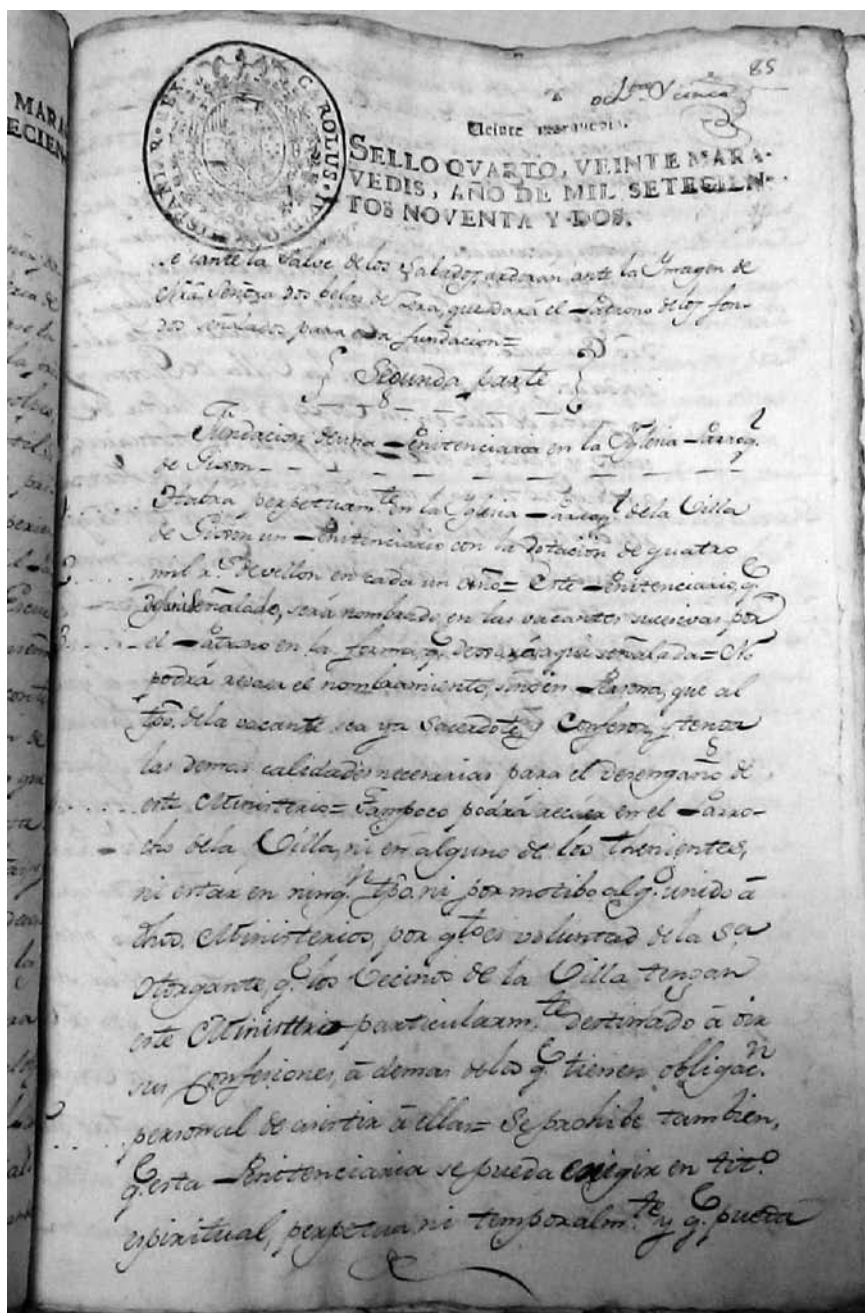 85
Veinte maravedis.
SELLO QVARTO, VEINTE MARA-
VEDIS, AÑO DE MIL SETECIEN-
TOS NOVENTA Y DOS.
CAROLUS IV D G HISPANIAR REX
MARA
ECIEN
se cante la Salve de los Sabados, arderan ante la Ymagen de
Nrâ Señora dos belas de zera, que dará el Patrono de los fon-
dos señalados para esta fundacion=
Segunda parte
Fundacion de una Penitenciaria en la Yglesia Parroq.l
de Gison
Habra perpetuam.te en la Yglesia Parroq.l de la Villa
de Gison un Penitenciario con la dotacion de quatro
mil r.s de vellon en cada un año= Este Penitenciario, q.e
señalado, será nombrado, en las vacantes sucesivas por
el Patrono en la forma, q.e dexará aqui señalada= No
podrá recaer el nombramiento, sino en Persona, que al
tpo. de la vacante sea ya Sacerdote, y Confesor, y tenga
las demas calidades necesarias para el desempeño de
este Ministerio= Tampoco podrá recaer en el Parro-
cho de la Villa, ni en alguno de los thenientes,
ni estar en ning.n tpo. ni por motibo alg.o unido á
dhos. Ministerios, por q.to es voluntad de la S.a
Otorgante, q.e los Vecinos de la Villa tengan
este Ministerio particularm.te destinado á oir
sus Confesiones, á demas de los q.e tienen obligac.n
personal de asistir á ellas= Se prohibe tambien,
q.e esta Penitenciaria se pueda erigir en tit.o
espiritual, perpetua, ni temporalm.te y q.e pueda